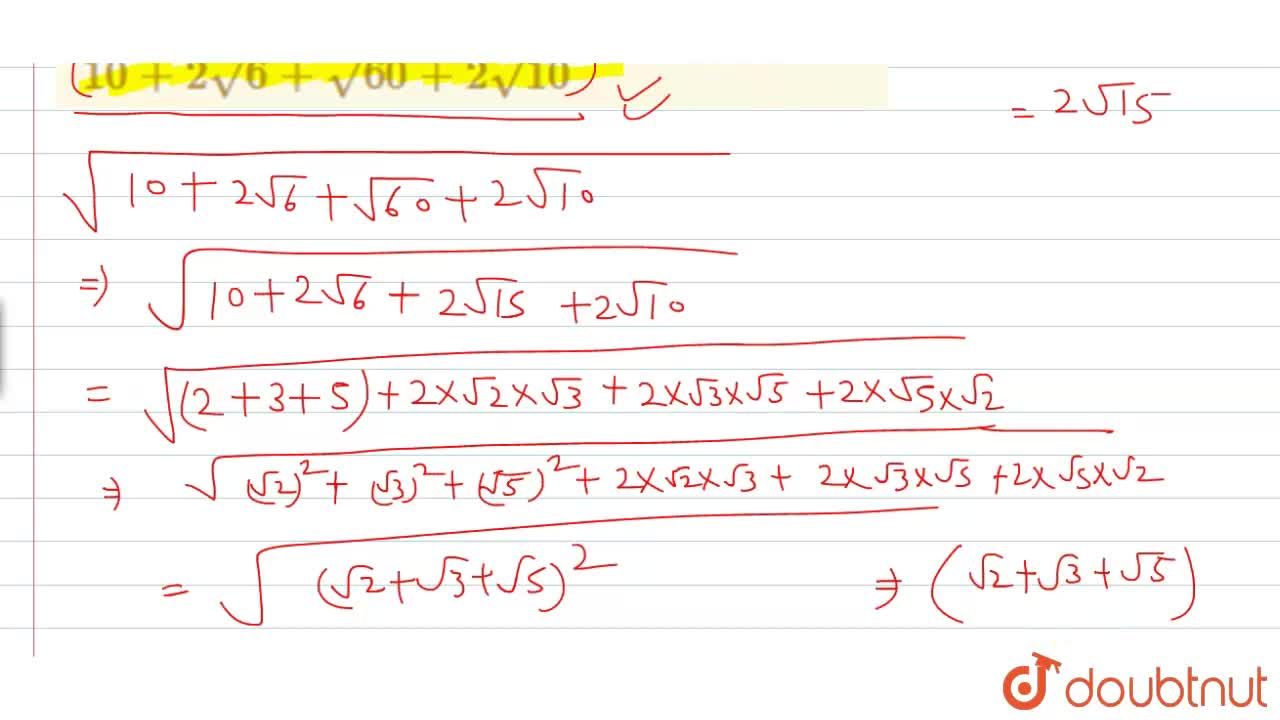 (10 + 2√6 + √60 + 2√10)
= 2√15
√(10 + 2√6 + √60 + 2√10)
⇒ √(10 + 2√6 + 2√15 + 2√10)
= √((2+3+5) + 2×√2×√3 + 2×√3×√5 + 2×√5×√2)
⇒ √((√2)² + (√3)² + (√5)² + 2×√2×√3 + 2×√3×√5 + 2×√5×√2)
= √((√2+√3+√5)²) ⇒ (√2+√3+√5)
doubtnut